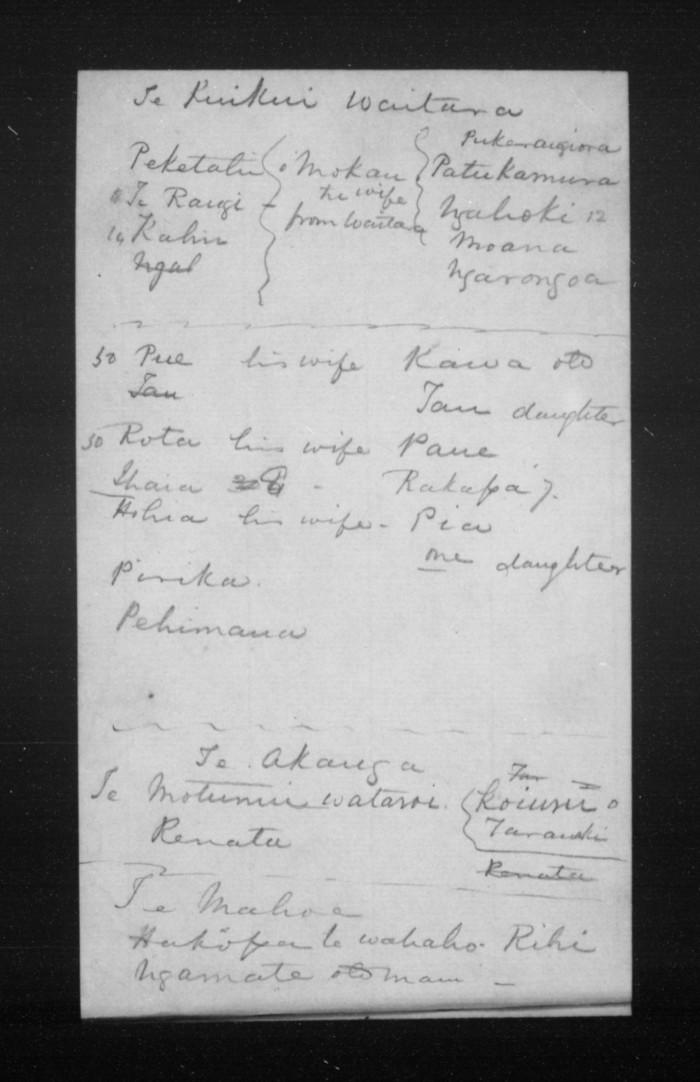 Te Kuikui Waitara
Pukerangiora
Peketahi Mokau Patukamura
Te Rangi - the wife Ngahoki 12
from Waitara
14 Kahu Moana
Ngarongoa
50 Pue his wife Kawa old
Tau Tau daughter
50 Rota his wife Paue
Ihaia - Rakapa 7.
Hohia his wife - Pia
one daughter
Pirika.
Pehimana
Te Akanga
Te
Renata Taranaki
Renata
Te Mahoe
Hakopa te wahaho. Rihi
Ngamate old man -